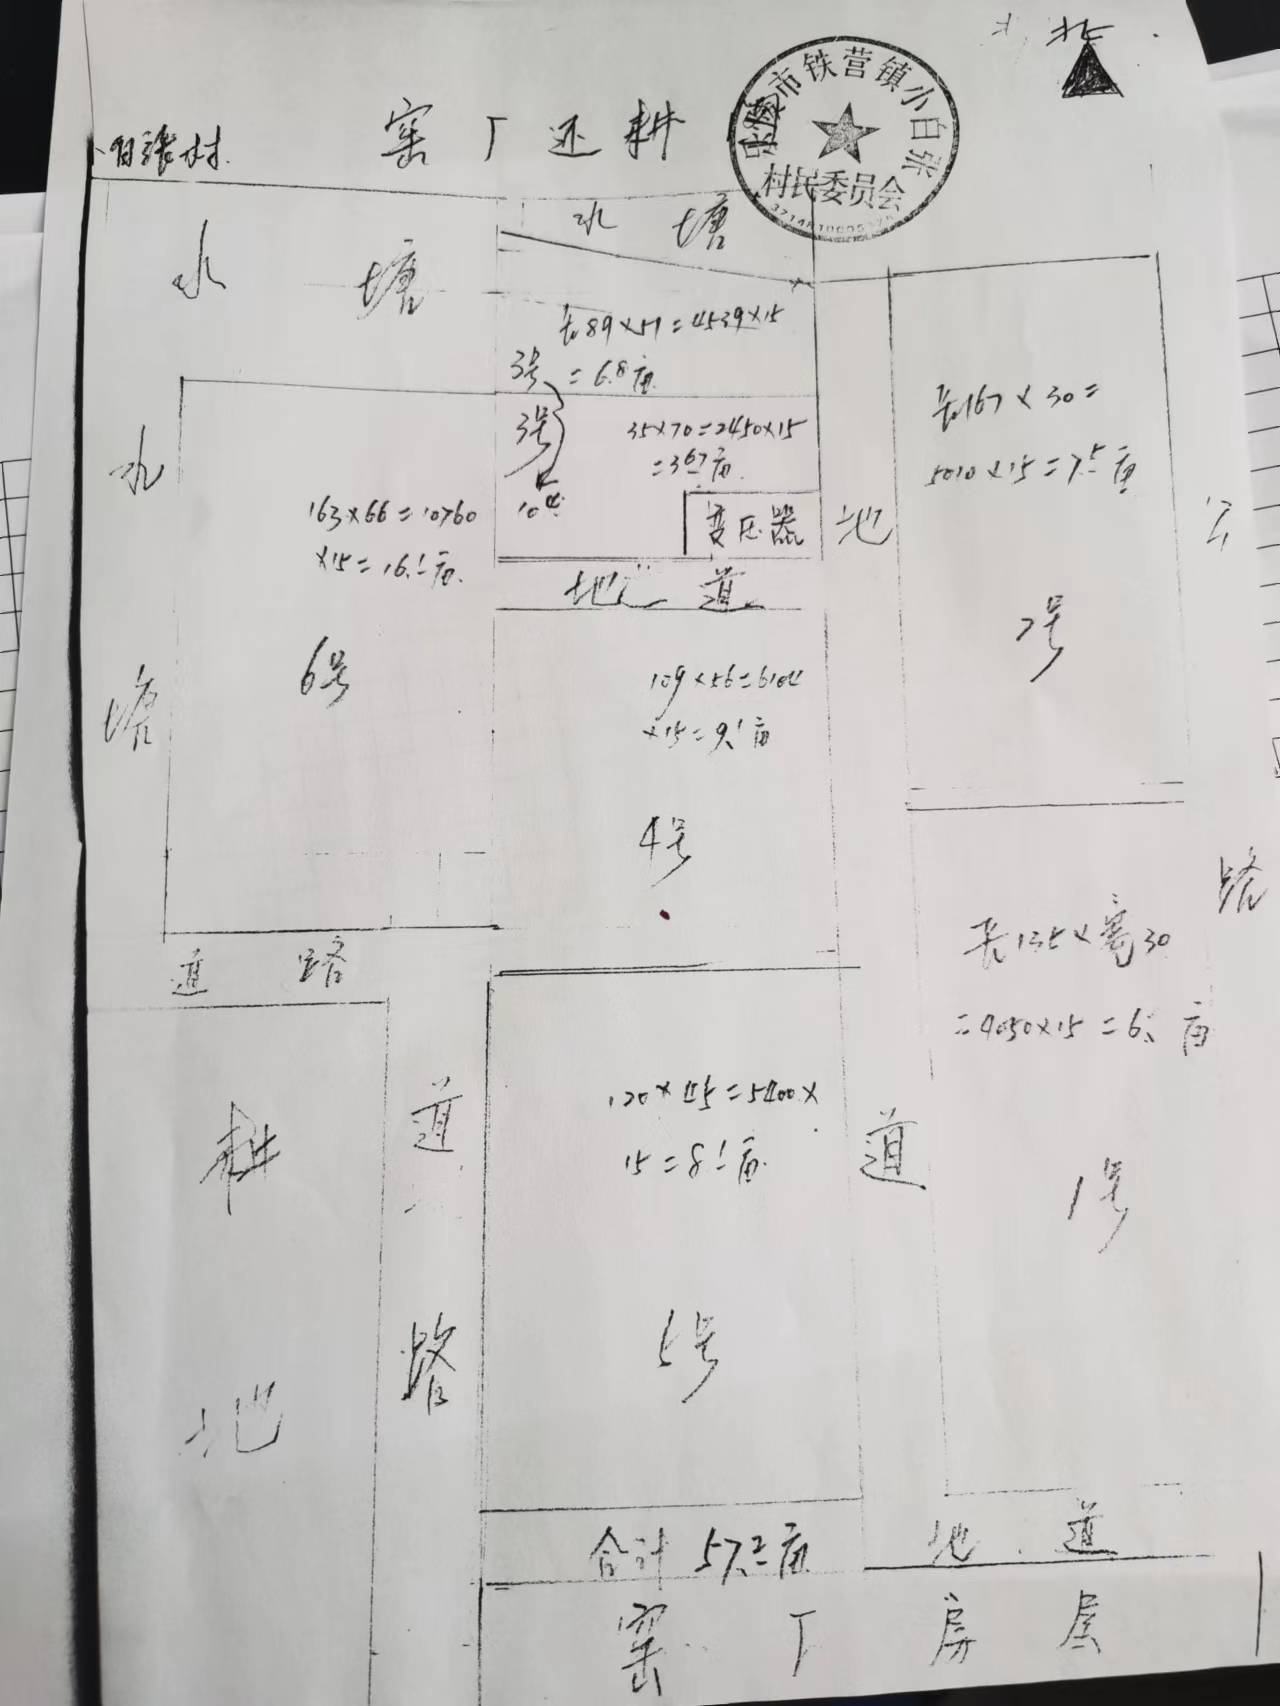 北
小白张村
窑厂还耕
市铁营镇小白张
村民委员会
水塘
水塘
长89×51=4539×15
3号
=6.8亩
3号
35×70=2450×15
=3.67亩
10.4
变压器
地道
长167×30=
5010×15=7.5亩
2号
公路
水塘
163×66=10760
×15=16.1亩
6号
109×56=6104
×15=9.1亩
4号
地道
道路
长135×宽30
=4050×15=6.亩
1号
耕地
道路
120×45=5400×
15=8.1亩
5号
合计57.2亩
地道
窑厂房屋